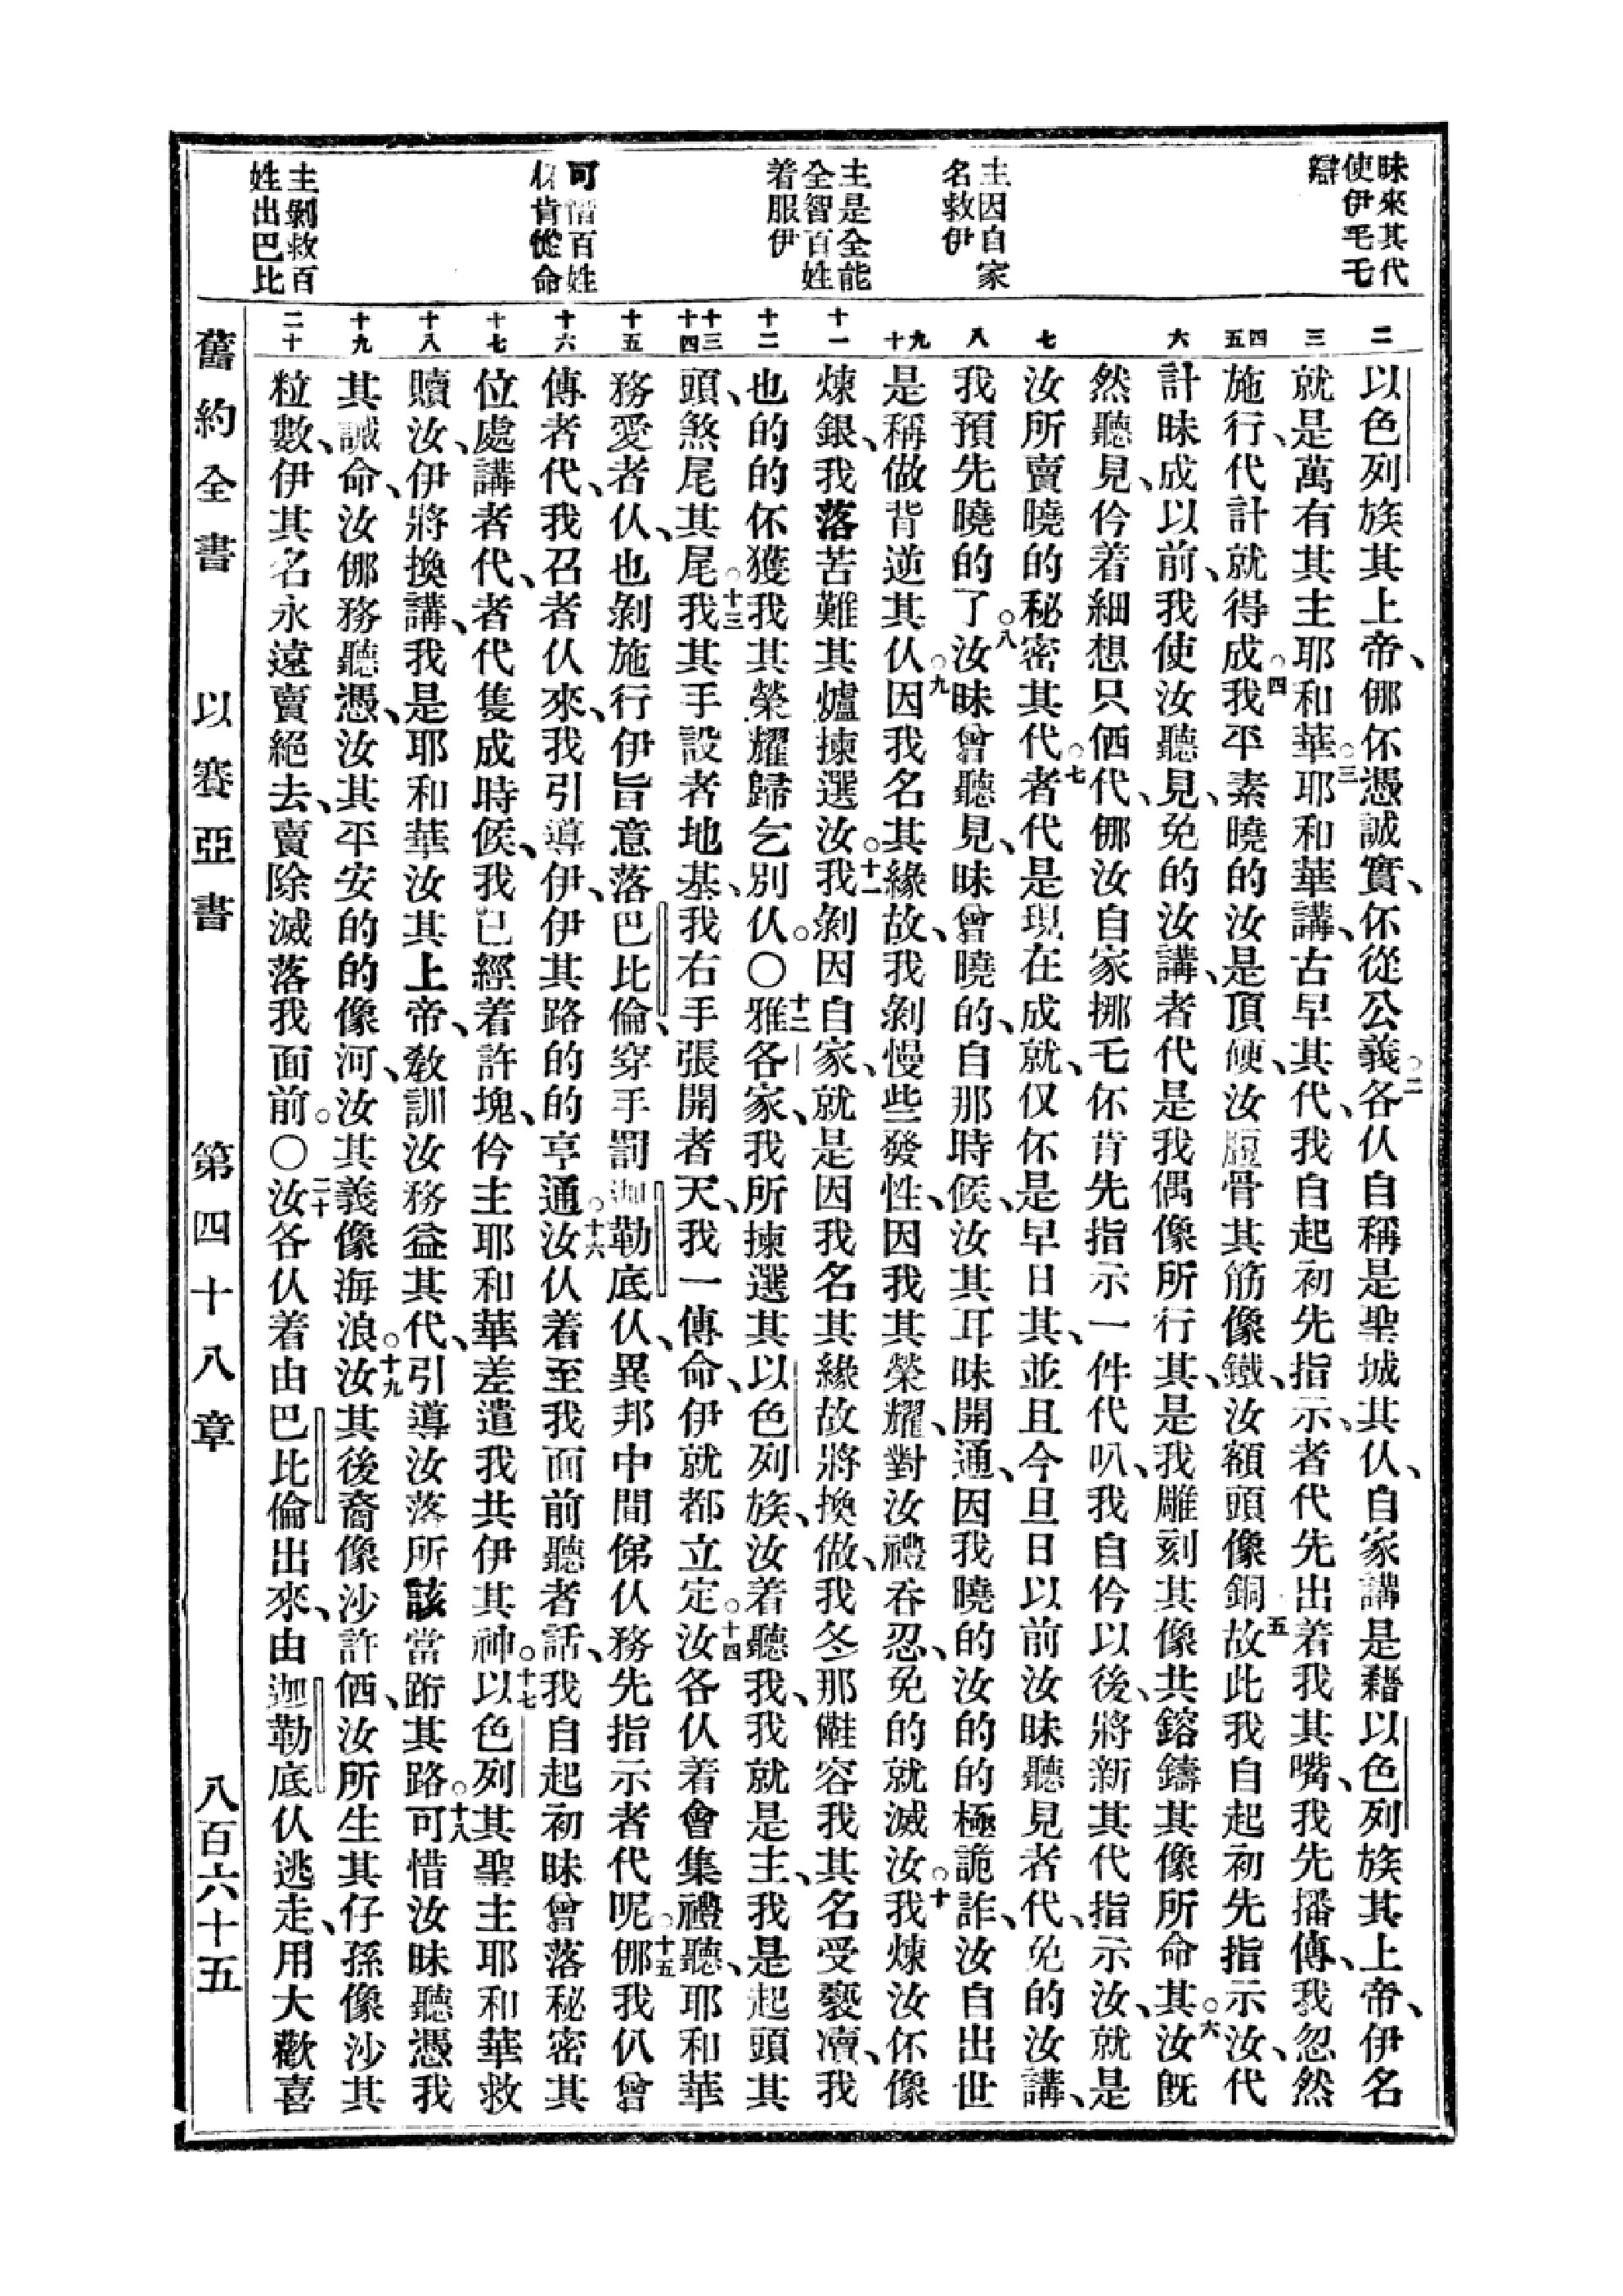 昧來其代
使伊毛毛
辯
主因自家
名救伊
主是全能
全智百姓
着服伊
可惜百姓
伓肯從命
主剝救百
姓出巴比
二
三
四
五
六
七
八
九
十
十一
十二
十三
十四
十五
十六
十七
十八
十九
二十
以色列族其上帝、㑚伓憑誠實、伓從公義。二各仈自稱是聖城其仈、自家講是藉以色列族其上帝、伊名
就是萬有其主耶和華。三耶和華講、古早其代、我自起初先指示、者代先出着我其嘴、我先播傳、我忽然
施行、代計就得成。四我平素曉的汝是頂硬、汝脰骨其筋像鐵、汝額頭像銅。五故此我自起初先指示汝、代
計昧成以前、我使汝聽見、免的汝講、者代是我偶像所行其、是我雕刻其像共鎔鑄其像所命其。六汝旣
然聽見、仱着細想只㐁代、㑚汝自家挪乇伓肯先指示一件代叭、我自仱以後、將新其代指示汝、就是
汝所賣曉的秘密其代。七者代是現在成就、仅伓是早日其、並且今旦日以前汝昧聽見者代、免的汝講、
我預先曉的了。八汝昧曾聽見、昧曾曉的、自那時候、汝其耳昧開通、因我曉的汝的的極詭詐、汝自出世
是稱做背逆其仈。九因我名其緣故、我剝慢些發性、因我其榮耀、對汝禮吞忍、免的就滅汝。十我煉汝伓像
煉銀、我落苦難其爐揀選汝。十一我剝因自家、就是因我名其緣故將換做、我冬那儺容我其名受褻凟、我
也的的伓獲我其榮耀歸乞別仈。〇十二雅各家、我所揀選其以色列族、汝着聽我、我就是主、我是起頭其
頭、煞尾其尾。十三我其手設者地基、我右手張開者天、我一傳命、伊就都立定。十四汝各仈着會集禮聽、耶和華
務愛者仈、也剝施行伊旨意落巴比倫、穿手罰迦勒底仈、異邦中間俤仈務先指示者代呢。十五㑚我仈曾
傳者代、我召者仈來、我引導伊、伊其路的的亨通。十六汝仈着至我面前聽者話、我自起初昧曾落秘密其
位處講者代、者代隻成時候、我已經着許塊、仱主耶和華差遣我共伊其神。十七以色列其聖主耶和華救
贖汝、伊將換講、我是耶和華汝其上帝、敎訓汝務益其代、引導汝落所該當跴其路。十八可惜汝昧聽憑我
其誡命、汝㑚務聽憑、汝其平安的的像河、汝其義像海浪。十九汝其後裔像沙許㐁、汝所生其仔孫像沙其
粒數、伊其名永遠賣絕去、賣除滅落我面前。〇二十汝各仈着由巴比倫出來、由迦勒底仈逃走、用大歡喜
舊約全書 以賽亞書 第四十八章 八百六十五